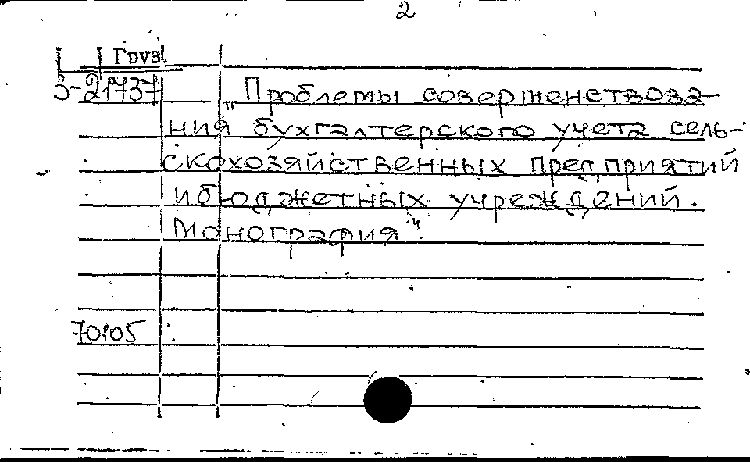 2
Груз
5-21737
"Проблемы совершенствова-
ния бухгалтерского учета сель-
скохозяйственных предприятий
и бюджетных учреждений.
Монография".
70105